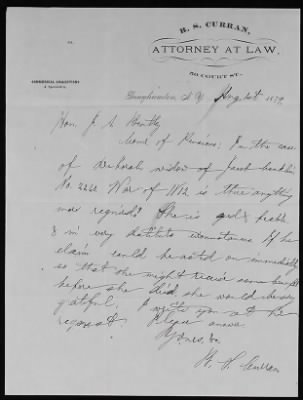 R. S. CURRAN,
ATTORNEY AT LAW.
50 COURT ST.
COMMERCIAL COLLECTIONS
A Specialty.
Binghamton, N.Y. Aug 1st 1879
Hon. J. A. Bently
Com of Pensions: In the case
of Deborah widow of Jacob
No. War of 1812 is there anything
more required? She is old & feeble
& in very destitute circumstances If he
claim could be acted on immediately
so that she might receive some benefit
before she died she would be very
grateful. I write you at her
request. Please answer
Yours, &c.
R. S. Curran